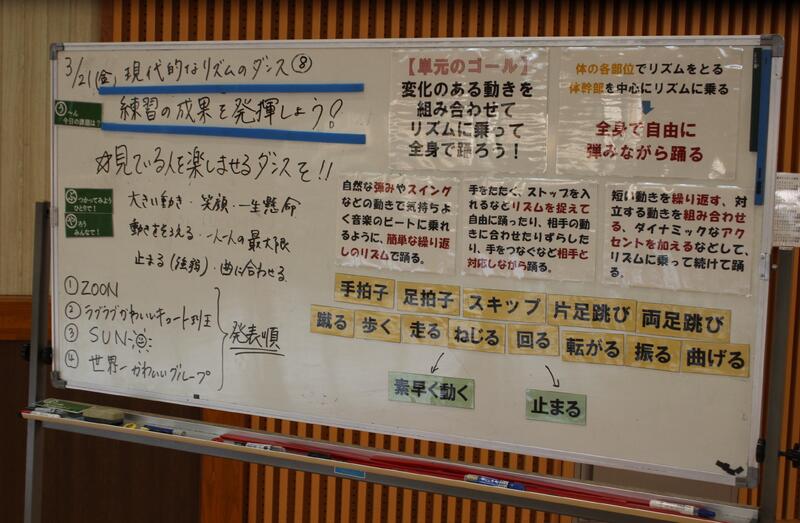 3/21(金) 現代的なリズムのダンス⑧
今日の課題は?
練習の成果を発揮しよう!
☆見ている人を楽しませるダンスを!!
つかってみよう
ひとりで!
やろう
みんなで!
大きい動き・笑顔・一生懸命
動きをそろえる・一人一人の最大限
止まる(強弱)・曲に合わせる
①ZOON
②ラブラブかわいいキュート班王
③SUN
④世界一かわいいグループ
発表順
【単元のゴール】
変化のある動きを
組み合わせて
リズムに乗って
全身で踊ろう!
体の各部位でリズムをとる
体幹部を中心にリズムに乗る
全身で自由に
弾みながら踊る
自然な弾みやスイング
などの動きで気持ちよ
く音楽のビートに乗
れるように、簡単な繰り返
しのリズムで踊る。
手をたたく、ストップを入
れるなどリズムを捉えて
自由に踊ったり、相手の動
きに合わせたりずらした
り、手をつなぐなど相手と
対応しながら踊る。
短い動きを繰り返す、対
立する動きを組み合わせ
る、ダイナミックなアク
セントを加えるなどして、
リズムに乗って続けて踊
る。
手拍子 足拍子 スキップ 片足跳び 両足跳び
蹴る 歩く 走る ねじる 回る 転がる 振る 曲げる
素早く動く 止まる